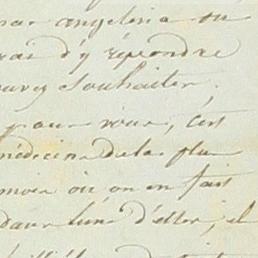 par angelina ou
rai d'y répondre
ouvez souhaiter.
pour vous, c'est
médecin de la plus
mois où on en fait
dans l'une d'elles, il